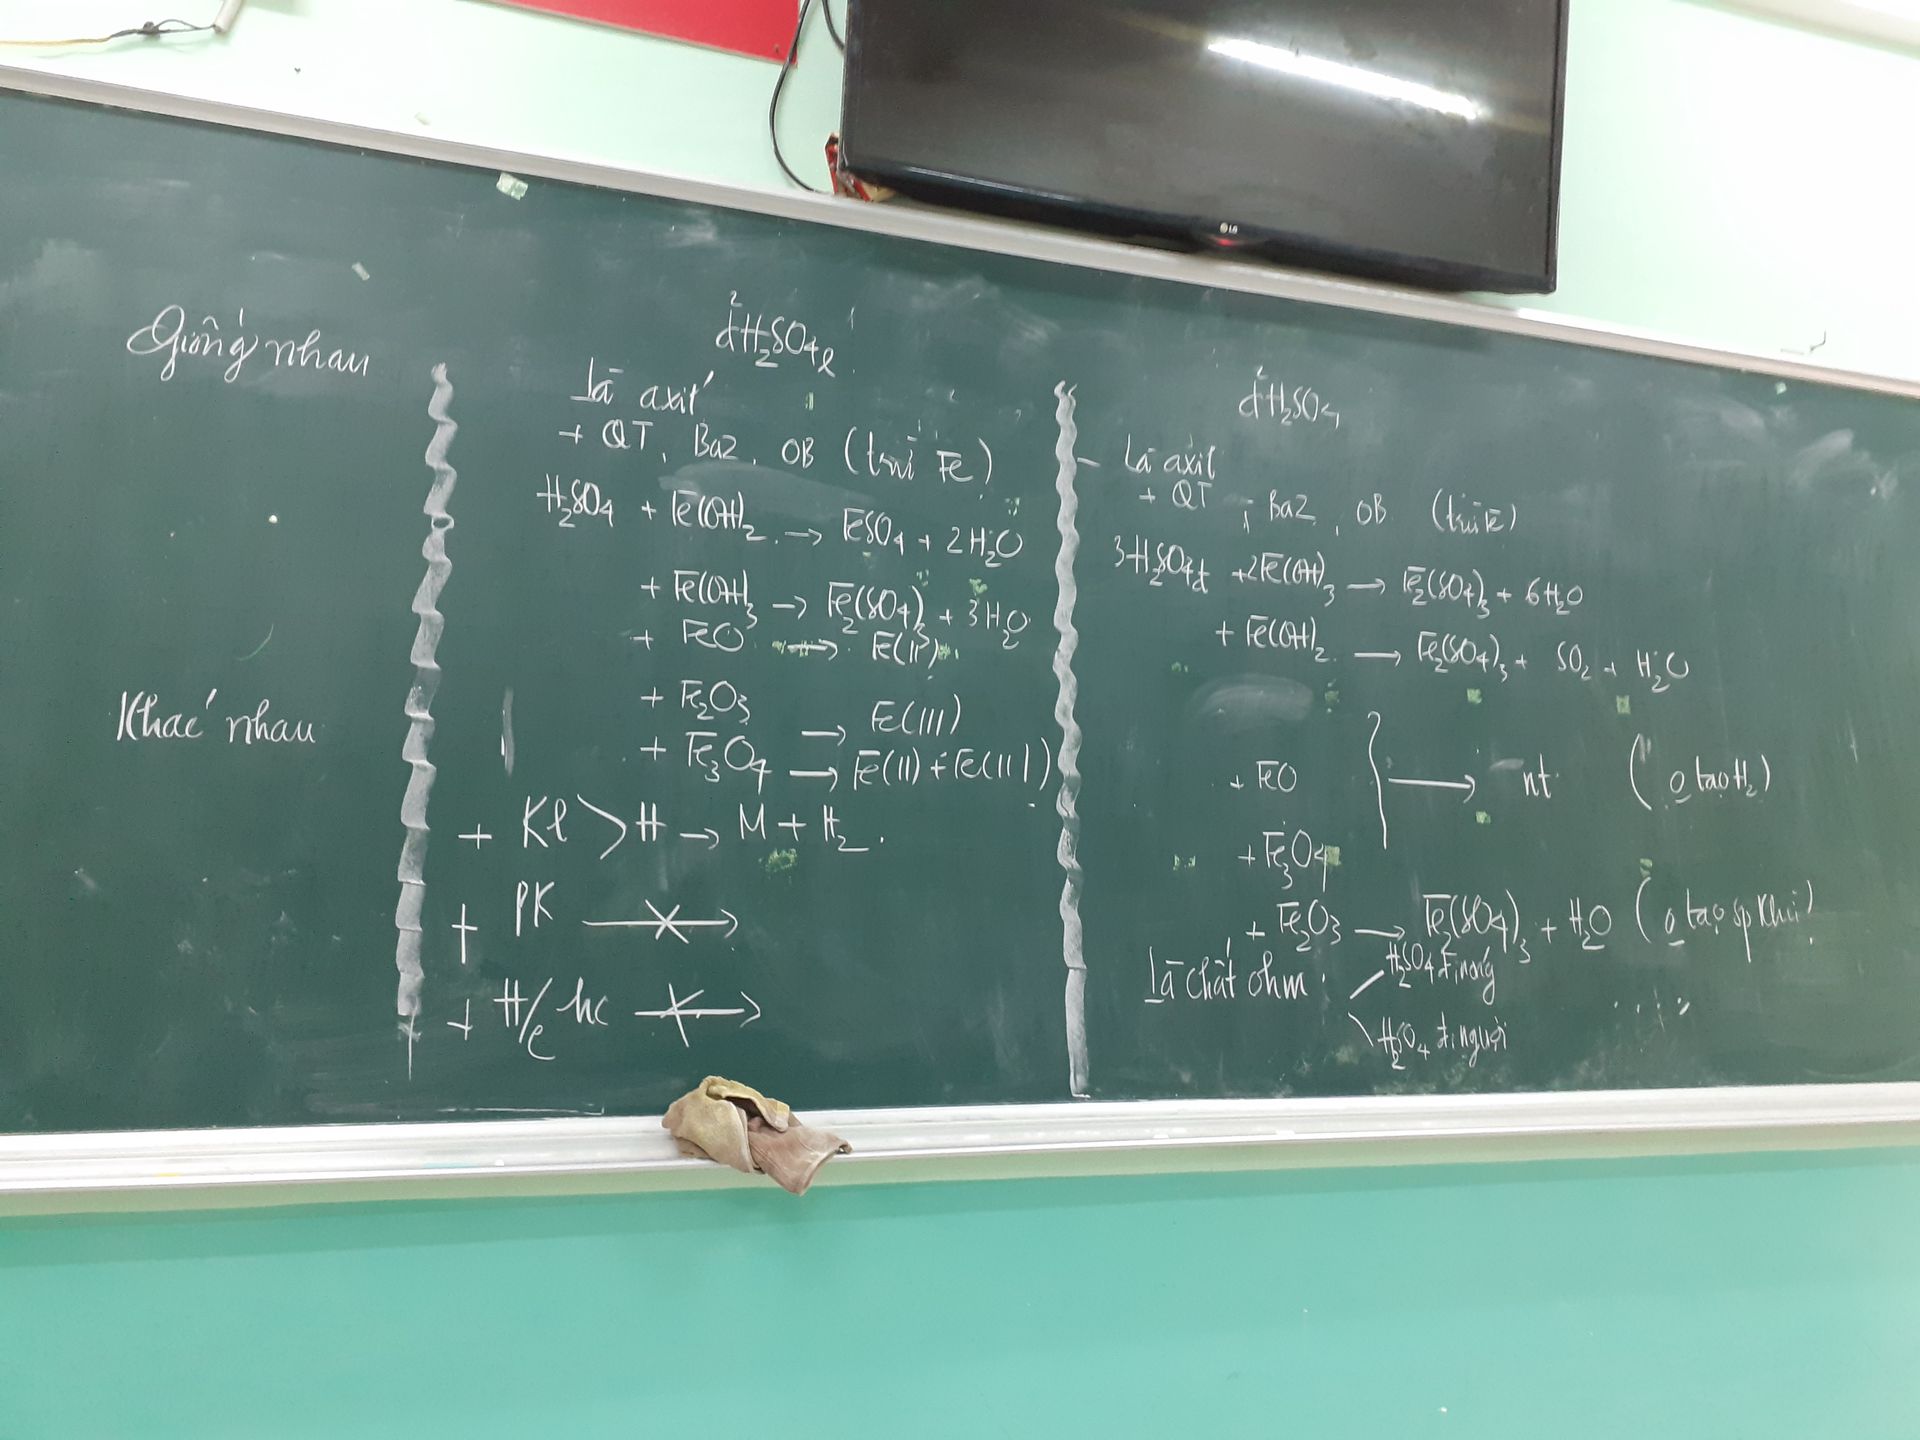 LG
Giống nhau
Khác nhau
d² H₂SO₄ℓ
Là axit
+ QT, Baz, OB (trừ Fe)
H₂SO₄ + Fe(OH)₂ → FeSO₄ + 2H₂O
+ Fe(OH)₃ → Fe₂(SO₄)₃ + 3H₂O
+ FeO → Fe(II)
+ Fe₂O₃ → Fe(III)
+ Fe₃O₄ → Fe(II) + Fe(III)
+ Kl > H → M + H₂.
+ PK
+ H/c hc
d² H₂SO₄
- Là axit
+ QT, Baz, OB (trừ Fe)
3H₂SO₄đ + 2Fe(OH)₃ → Fe₂(SO₄)₃ + 6H₂O
+ Fe(OH)₂ → Fe₂(SO₄)₃ + SO₂ + H₂O
+ FeO
+ Fe₃O₄
→ nt (o tạo H₂)
+ Fe₂O₃ → Fe₂(SO₄)₃ + H₂O (o tạo sp khử)
Là chất ohm.
H₂SO₄ đ, nóng
H₂SO₄ đ, nguội